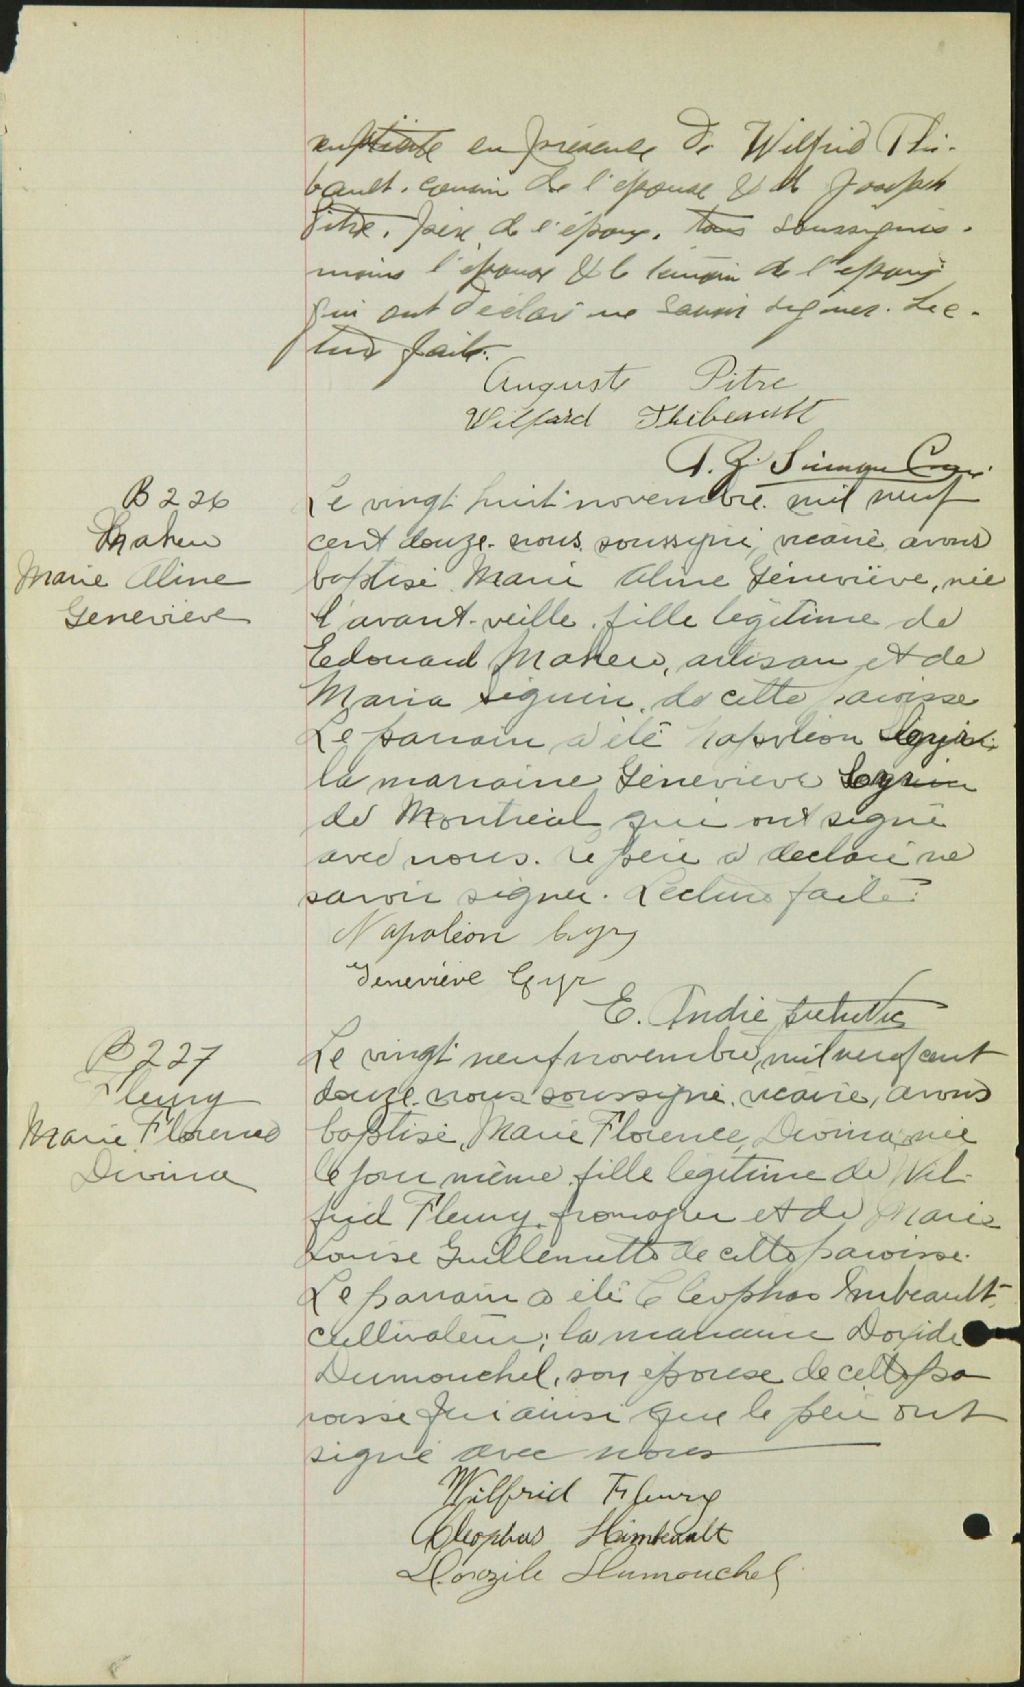 en présence de Wilfrid Thi-
bault, cousin de l'épouse & de Joseph
Pitre, père de l'époux, tous soussignés,
moins l'épouse & le témoin de l'époux
qui ont déclaré ne savoir signer. Lec-
ture faite.
Auguste Pitre
Wilfard Thibeault
B 226
Maheu
Marie Aline
Geneviève
Le vingt huit novembre mil neuf
cent douze nous soussigné vicaire avons
baptisé Marie Aline Géneviève, née
l'avant-veille, fille légitime de
Edouard Maheu, artisan et de
Maria Seguin, de cette paroisse
Le parrain a été Napoléon
la marraine Géneviève
de Montréal qui ont signé
avec nous. Le père a déclaré ne
savoir signer. Lecture faite.
Napoléon Cyr
Geneviève Cyr
E. André ptre vic
B 227
Fleury
Marie Florence
Divina
Le vingt neuf novembre, mil neuf cent
douze nous soussigné, vicaire, avons
baptisé, Marie Florence, Divina, née
le jour même, fille légitime de Wil-
frid Fleury, fromager et de Marie
Louise Guillemette de cette paroisse.
Le parrain a été Cléophas Imbeault,
cultivateur; la marraine
Dumouchel, son épouse de cette pa
roisse qui ainsi que le père ont
signé avec nous
Wilfrid Fleury
Cleophas Himbeault
Dorzile Dumouchel